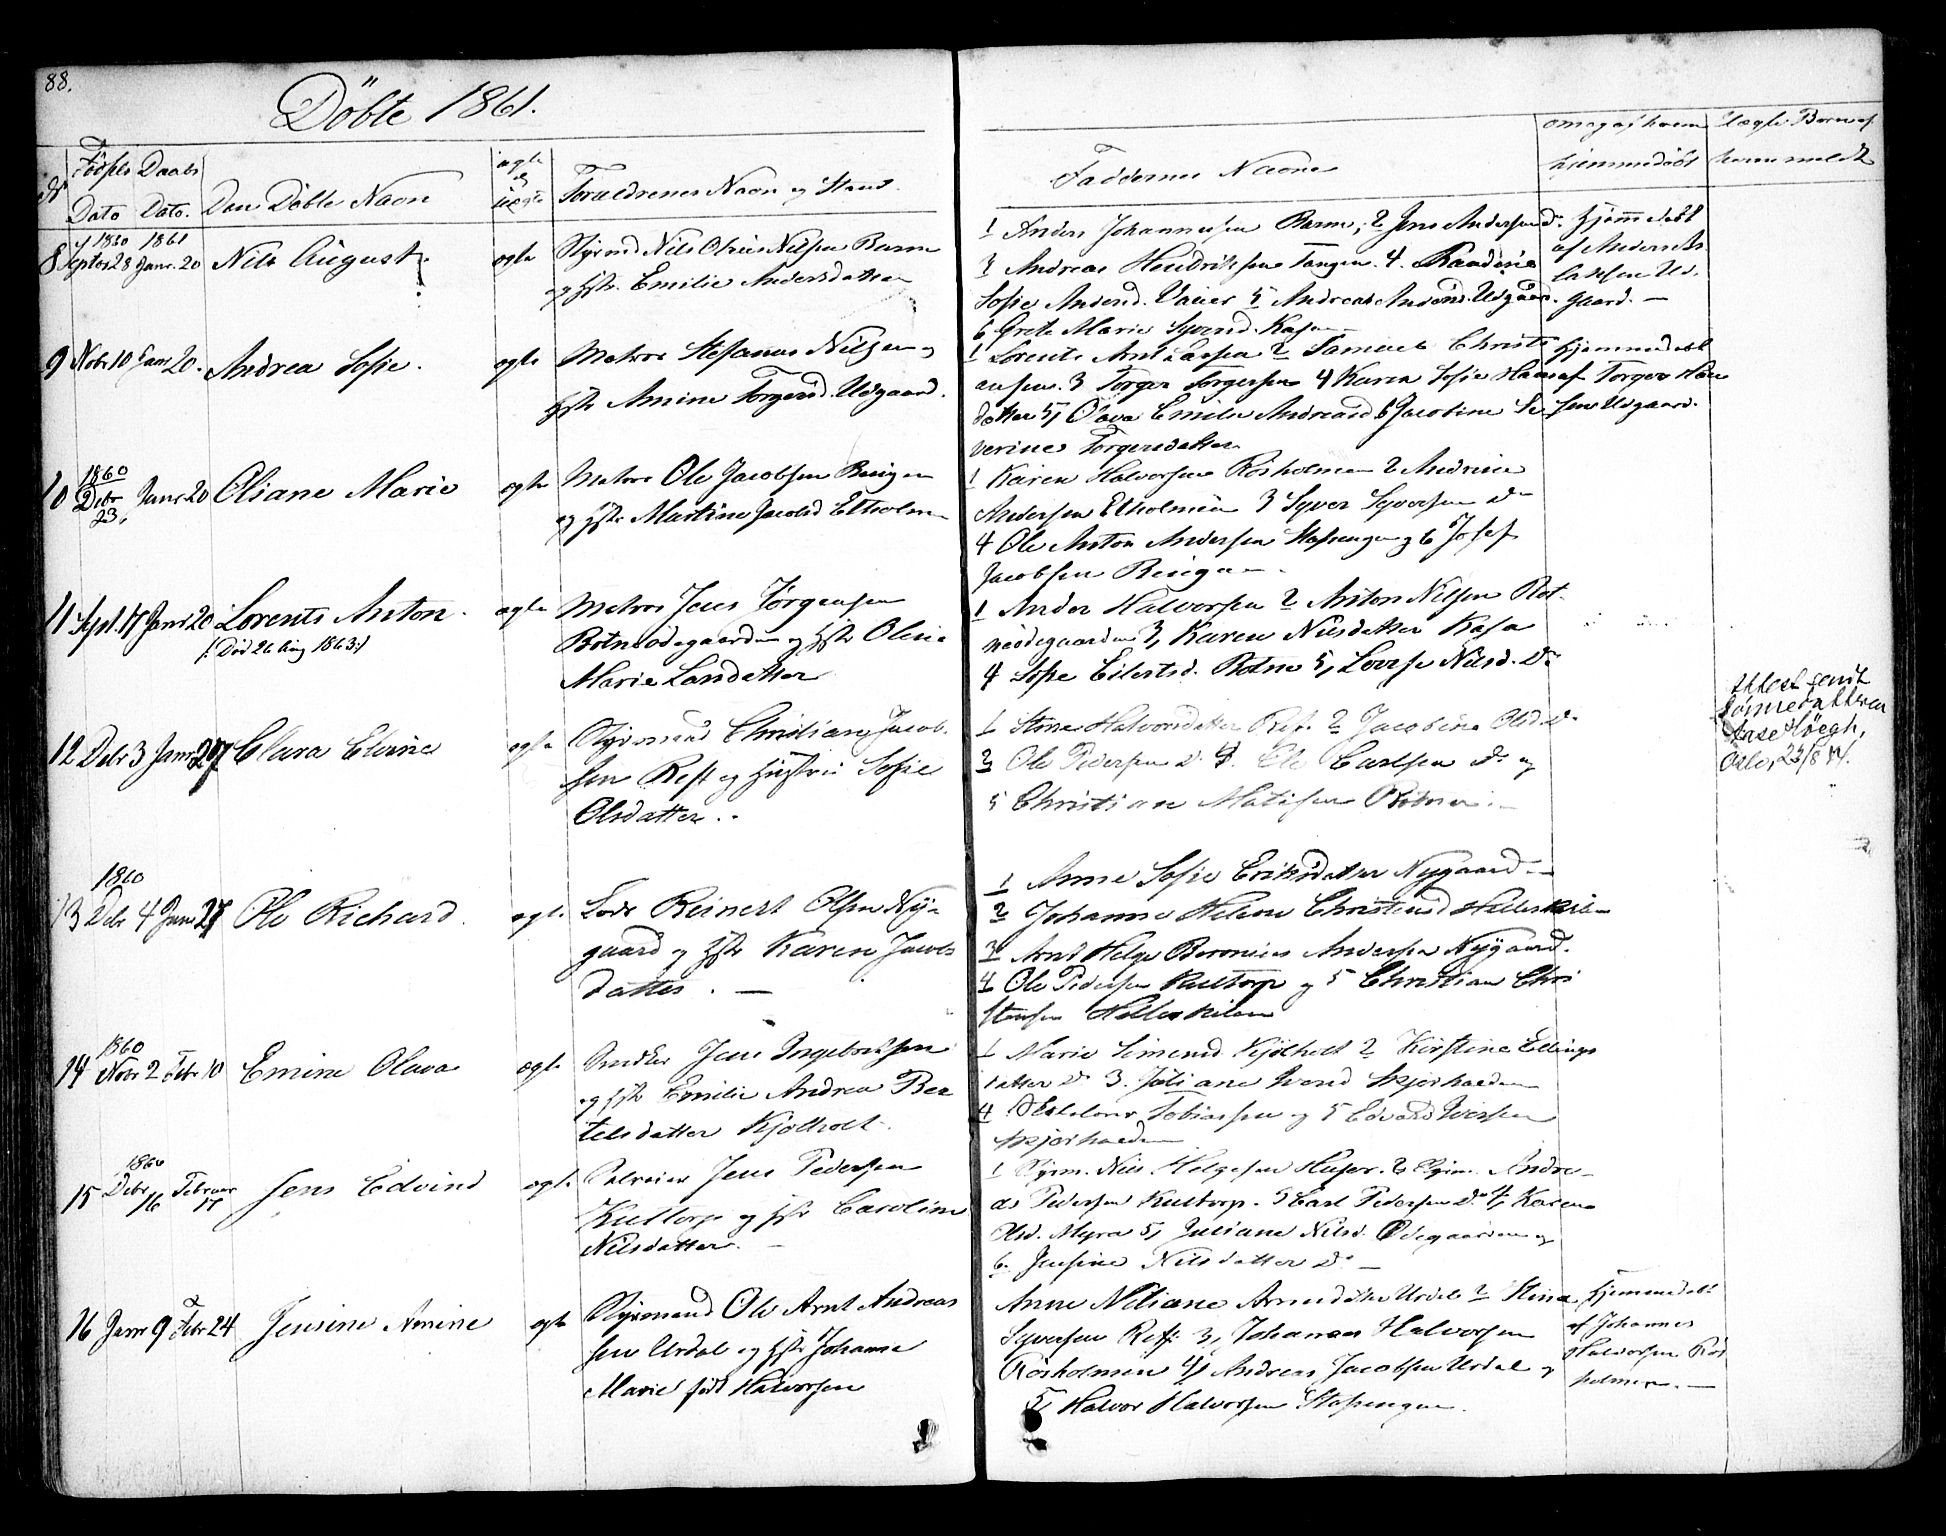 88.
Döbte 1861.
Födsels Daabs
Dato Dato. Den Döbte Navn
ægte
uægte
Foraldrenes Navn og Stand.
Faddernes Navne
om og af hvem
hjemmedöbt
Uægte Barn af
hvem meldt
1860 1861
8 Septbr 28 Janr. 20 Nils August. ægte Styrmd Nils Olaus Nilsen
og hstr. Emilie Andersdatter
1 Anders Johannesen 2 Jens Andersen do.
3 Andreas Hendriksen Tangen. 4.
Sofie Andersd. Vauer 5 Andreas Andersd. Udgaard.
6 Grete Marie Syversd. Kasa
Hjemmedöbt
af Anders
Udgaard. —
9 Nobr 10 Janr 20. Andrea Sofie. ægte Matros Stefanus Nilsen og
hstr Anine Torgersd. Udgaard.
1 Lorents Arnt Larsen 2 Samuel Christi
ansen. 3 Torger Torgersen 4 Karen Sofie Hans
datter 5, Olava Emilie Andreasd 6 Jacobine Se
verine Torgersdatter
Hjemmedöbt
af Torger Han
sen Udgaard.
1860
10 Debr 23, Janr 20 Oliane Marie ægte Matros Ole Jacobsen
og hstr Martine Jacobsd Etholm
1 Karen Halvorsen Rösholmen 2 Andrine
Andersen Etholmen 3 Syver Syversen do
4 Ole Anton Andersen Stapengen og 6 Josef
Jacobsen
11 Sept. 17 Janr 20 Lorents Anton. ægte Matros Jens Jörgensen
(: Död 26 Aug 1863:)
Botneödegaarden og hstr Oline
Marie Larsdatter
1 Anders Halvorsen 2 Anton Nilsen Bot
neödegaarden 3, Karen Nilsdatter Kasa
4 Sofie Eilertsd. Botne 5, Lovise Nilsd. do
12 Debr 3 Janr 27 Clara Elvine ægte Styrmand Christian Jacob
sen Röst og Hustru Sofie
Olsdatter..
1 Stine Halvorsdatter Röst. 2 Jacobine Olsd. do
3 Ole Pedersen do 4. Ole Carlsen do og
5 Christian Matisen Botne.
Attest sendt
sönnedatteren
Aase Höegh,
Oslo, 23/8
1860
13 Debr 4 Janr 27 Ole Richard. ægte Lods Reinert Olsen Ny
gaard og hstr Karen Jacobs
datter. —
1 Anne Sofie Eriksdatter Nygaard —
2 Johanne Helene Christensd Hellekilen
3 Arnt Helge Beronius Andersen Nygaard.
4 Ole Pedersen Kultorp og 5 Christian Chri
stensen Hellekilen
1860
14 Nobr 2 Febr 10 Emine Olava ægte Snedker Jens Ingebretsen
og hstr Emilie Andrea Ber
telsdatter Kjölholt.
1 Marie Simensd Kjölholt 2 Kirstine Ellings
datter do 3. Juliane Iversd Skjærhalden
4 Tobiassen og 5 Edvard Iversen
Skjærhalden
1860
15 Debr 16 Februar 17 Jens Edvind ægte Jens Pedersen
Kultorp og hstr Caroline
Nilsdatter. —
1 Styrm. Nils Helgesen Huser. 2 Styrm. Andre
as Pedersen Kultorp. 3 Carl Pedersen do 4, Karen
Olsd. Myra 5, Juliane Nilsd. Ödegaarden og
6. Jensine Nilsdatter do —
16 Janr 9 Febr 24 Jensine Annine ægte Styrmand Ole Arnt Andreas
sen Urdal og hstr Johanne
Marie född Halvorsen
Anne Neliane Urdal 2 Stina
Syversen Röst 3, Johannes Halvorsen
Rösholmen 4, Andreas Jacobsen Urdal og
5 Halvor Halvorsen Stapengen.
Hjemmedöbt
af Johannes
Halvorsen Rös
holmen. —